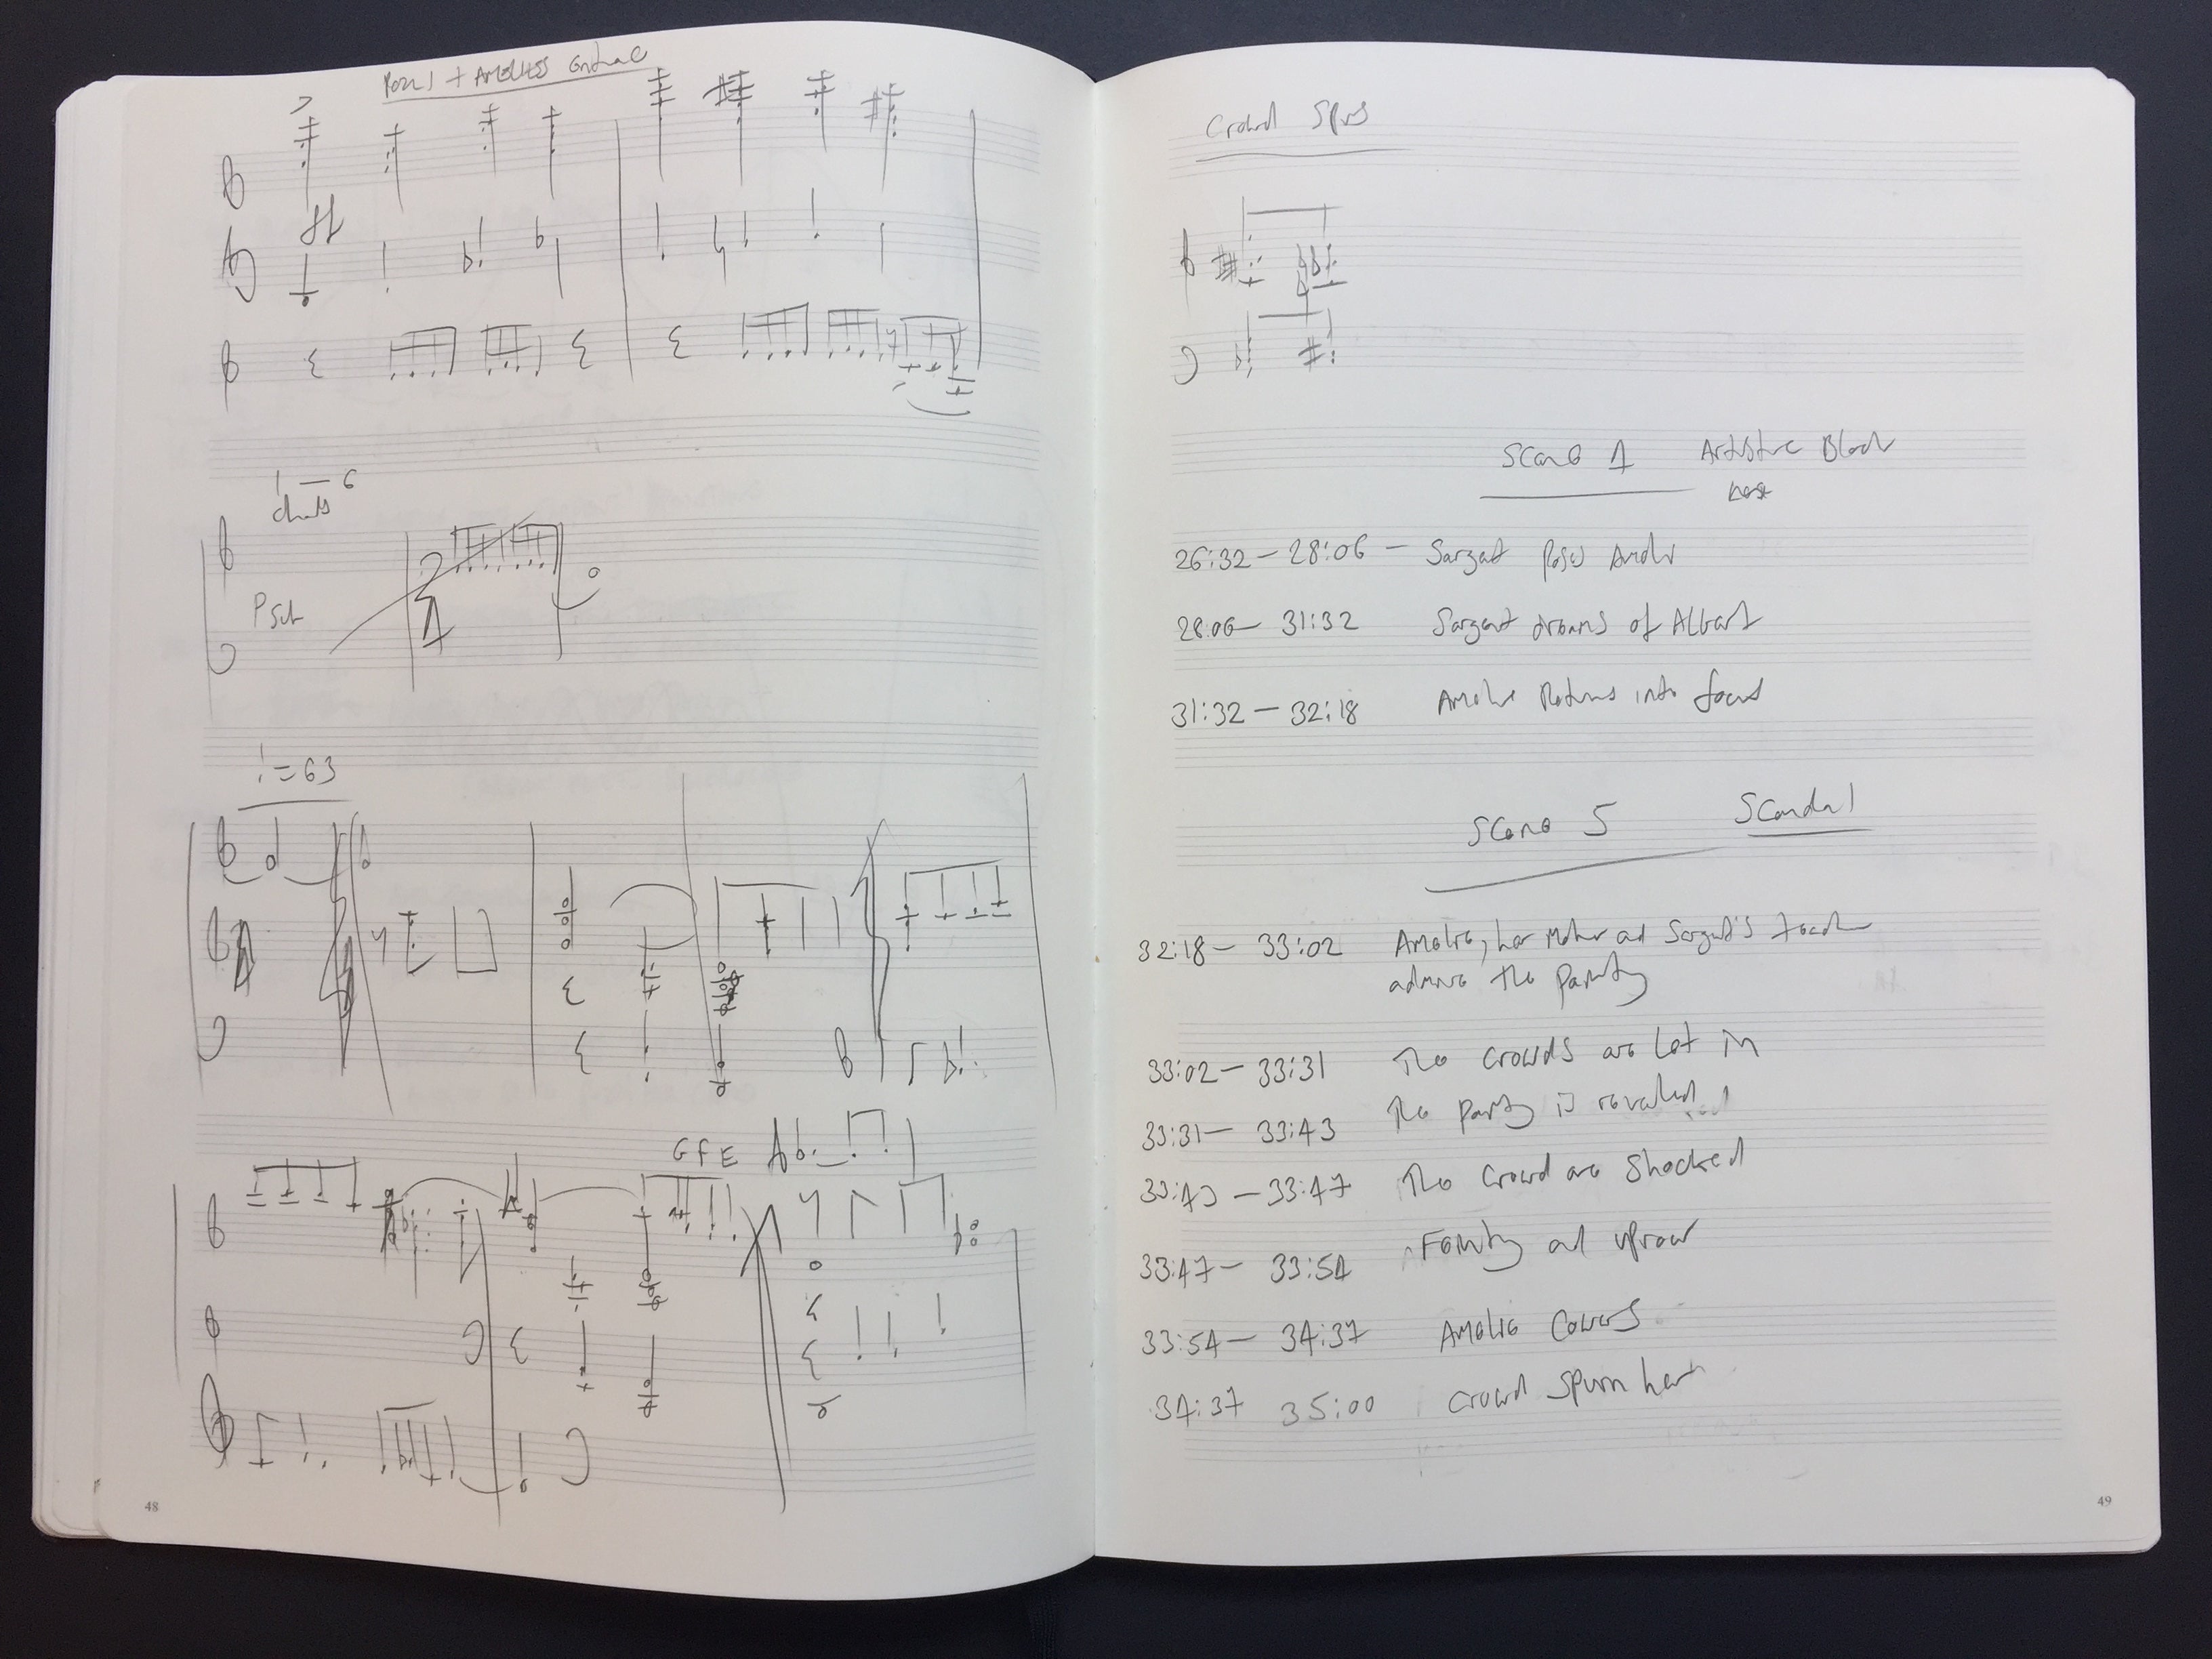 + Amelies Entrance
1 — 6
chords
= 63
G F E Ab
48
Crowd
Scene 4 Artistic Block
26:32 – 28:06 – Sargent Poses Amelie
28:06 – 31:32 Sargent dreams of Albert
31:32 – 32:18 Amelie Returns into focus
Scene 5 Scandal
32:18 – 33:02 Amelie, her Mother and Sargent's teacher
admire the painting
33:02 – 33:31 The crowds are let in
33:31 – 33:43 The painting is revealed
33:43 – 33:47 The Crowd are Shocked
33:47 – 33:54 and uproar
33:54 – 34:37 Amelie Cowers
34:37 35:00 Crowd Spurn her
49